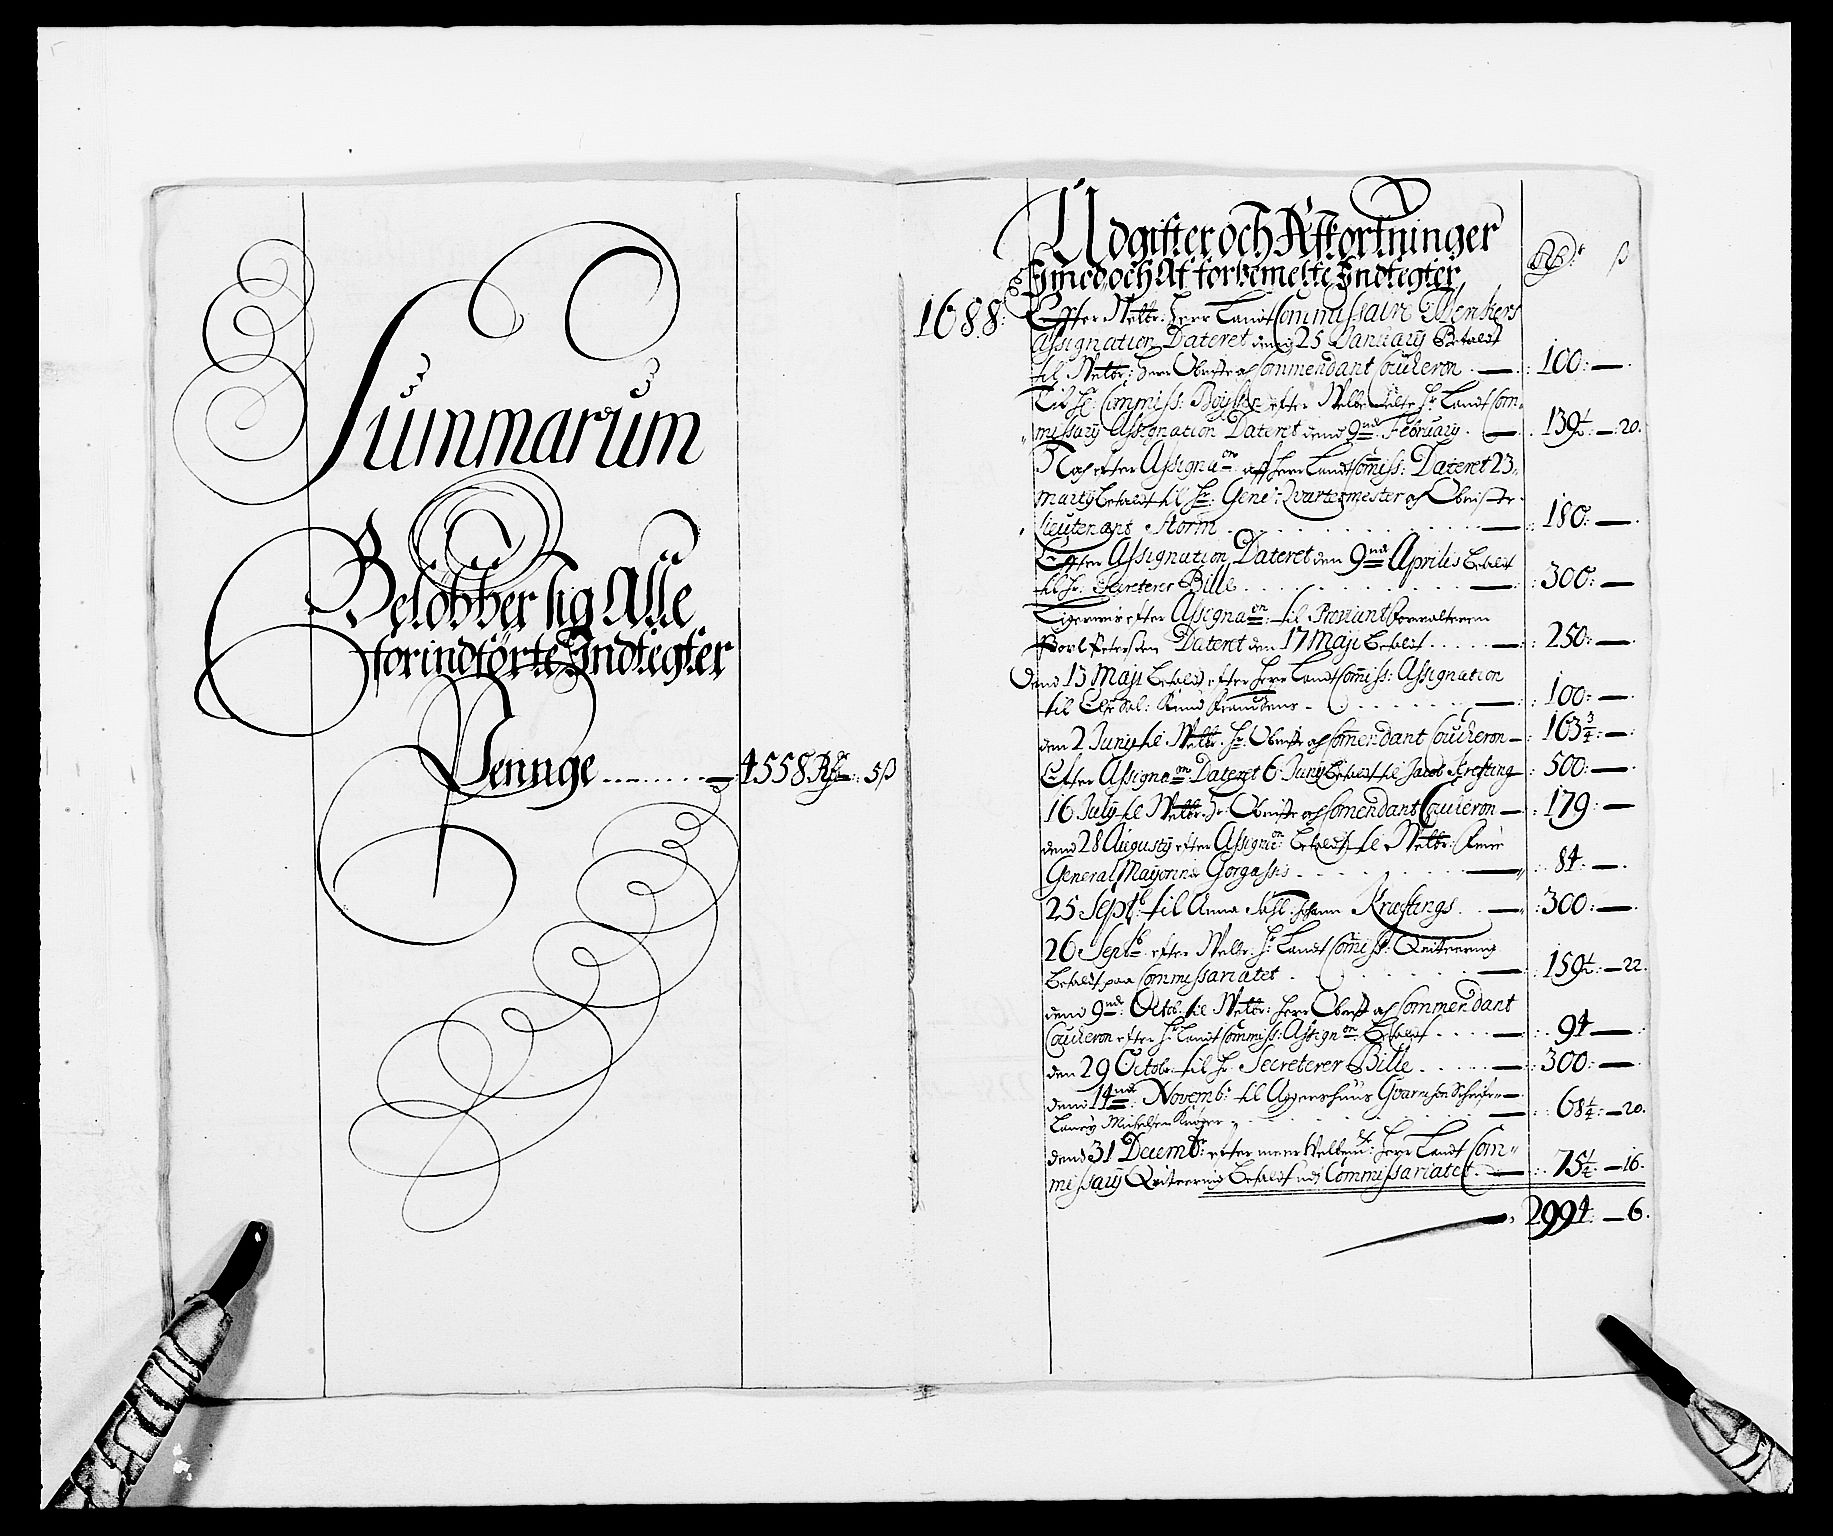 Summarum
Beløbber sig Alle
forindførte Indtegter
Penge 4558 Rdr: 5 ß
Udgifter och Afkortninger
Imod och Af forbemelte Indtegter
Rdr ß
1688: Effter Welbr: Herr Landt Commissaire Wenkers
Assignation Dateret denn 25 January Betaldt
til Welbr: Herr Obriste och Commendant Coucheron 100: —
Til Hr: Commiss: efter Hr Landt Com-
missarij Assignation Dateret dend 9nd February 139½ — 20.
Noch efter Assignaon aff Herr Landt Comiss: Dateret 23.
Martij betaldt til Hr: Gene: Qvartermester och Obriste
Lieutenant Storm 180: —
Effter Assignation Dateret den 9nd Aprilis betalt
til Hr: Secreterer Bille 300: —
Ligerwis efter Assignaon til Proviantforvalteren
Povl Petersøn Dateret den 17 Maji betalt 250: —
Dend 13 Maji betaldt efter Herr Landt Comiss: Assignation
til Sal: 100: —
den 2 Junij til Welbr. Hr. Obriste och Comendant Coucheron 163¾: —
Efter Assignaon Dateret 6 Junij betaldt til Jacob Krefting 500: —
16 July til Welbr: Hr: Obriste och Comendant Coucheron 179: —
dend 28 Augustij efter Assignaon betaldt til Welbr:
General Mayorinde Gorgassis 84: —
25 Septb: til Anna Sahl: Johann Krueftings 300: —
26 Septb: efter Welbr: Hr Landt Comiss: Qvittering
betaldt paa Commissariatet 159½: — 22.
dend 9nd: Octob: til Welbr: Herr Obrist och Commendant
Coucheron efter Hr Landt Commiss: Assignon: betalt 94 —
den 29 Octobr: til Hr Secreterer Bille 300: —
dend 14nd: Novemb: til Aggershuus Gvarnison Schrifr
68¼: — 20.
dend 31 Decembr: efter meer Welbemt: Herr Landt Com-
missarij Qvittering betaldt udj Commissariatet 75¼: — 16.
2994: — 6.